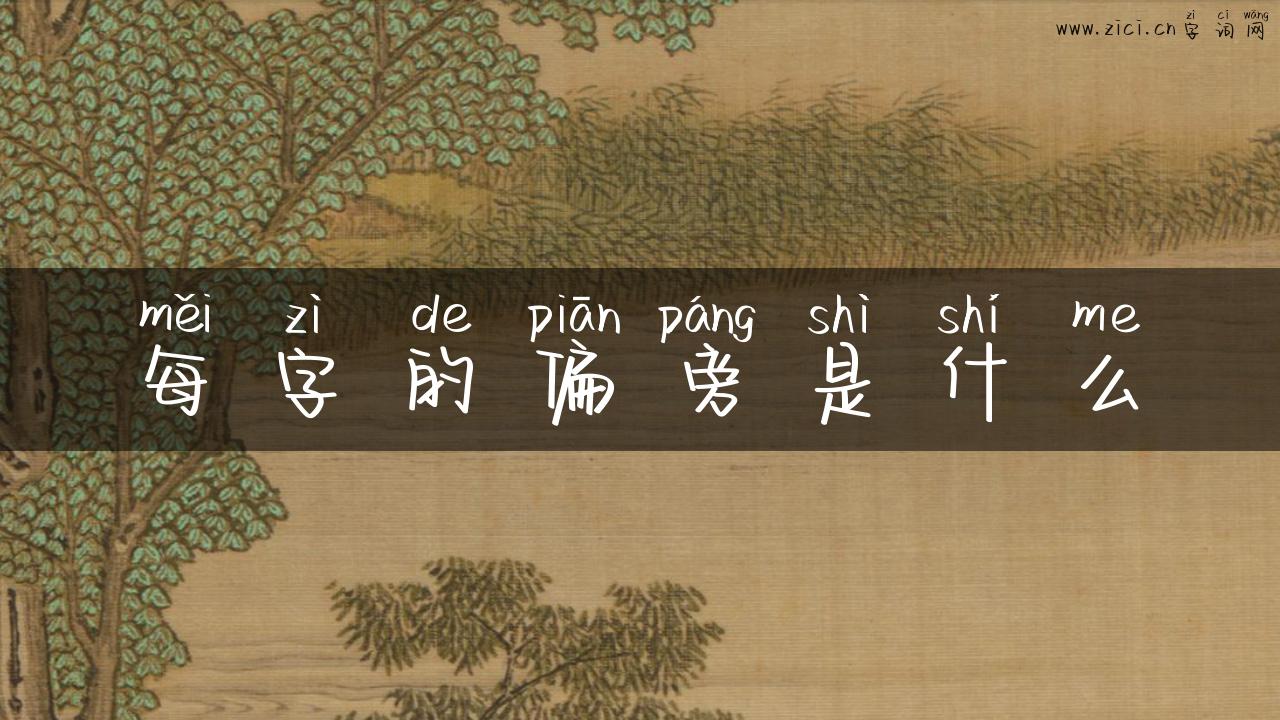 zì cí wǎng
www.zici.cn 字词网
měi zì de piān páng shì shí me
每字的偏旁是什么